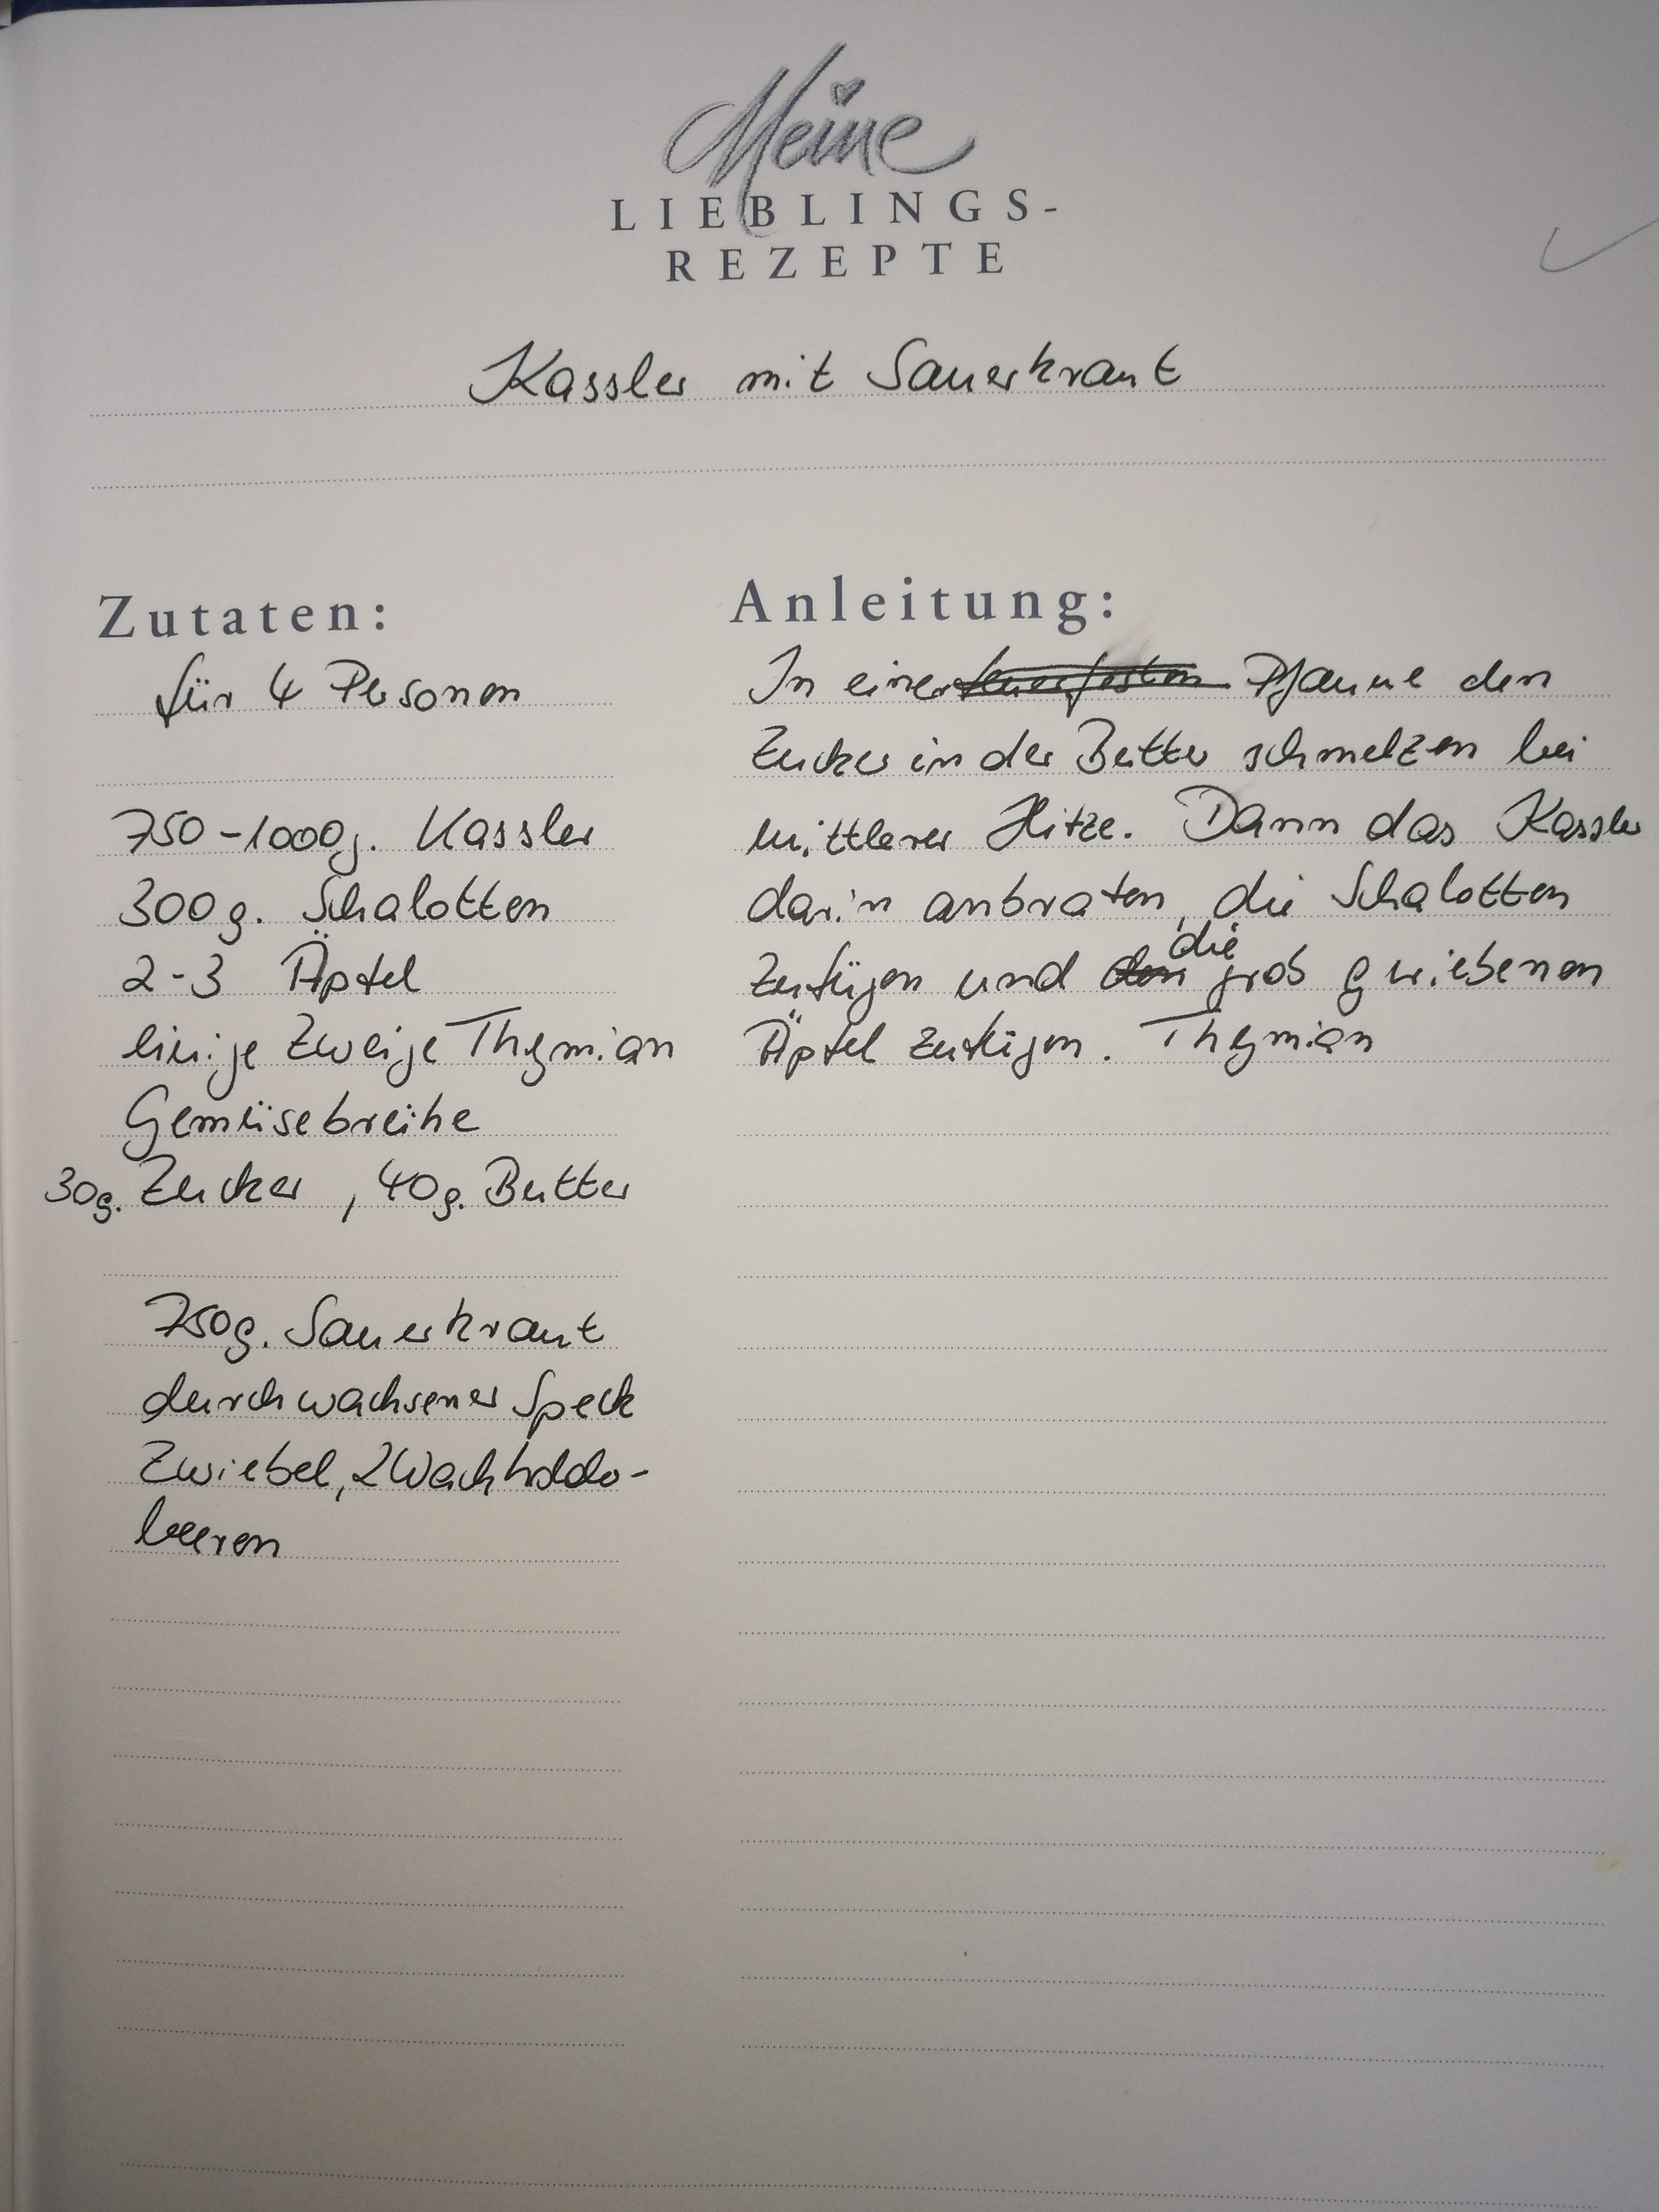 Meine
LIEBLINGS-
REZEPTE
Kassler mit Sauerkraut
Zutaten:
für 4 Personen
750-1000g. Kassler
300g. Schalotten
2-3 Äpfel
einige Zweige Thymian
Gemüsebrühe
30g. Zucker, 40g. Butter
750g. Sauerkraut
durchwachsener Speck
Zwiebel, 2 Wachholder-
beeren
Anleitung:
In einer feuerfesten Pfanne den
Zucker in der Butter schmelzen bei
mittlerer Hitze. Dann das Kassler
darin anbraten, die Schalotten
zufügen und den die grob geriebenen
Äpfel zufügen. Thymian